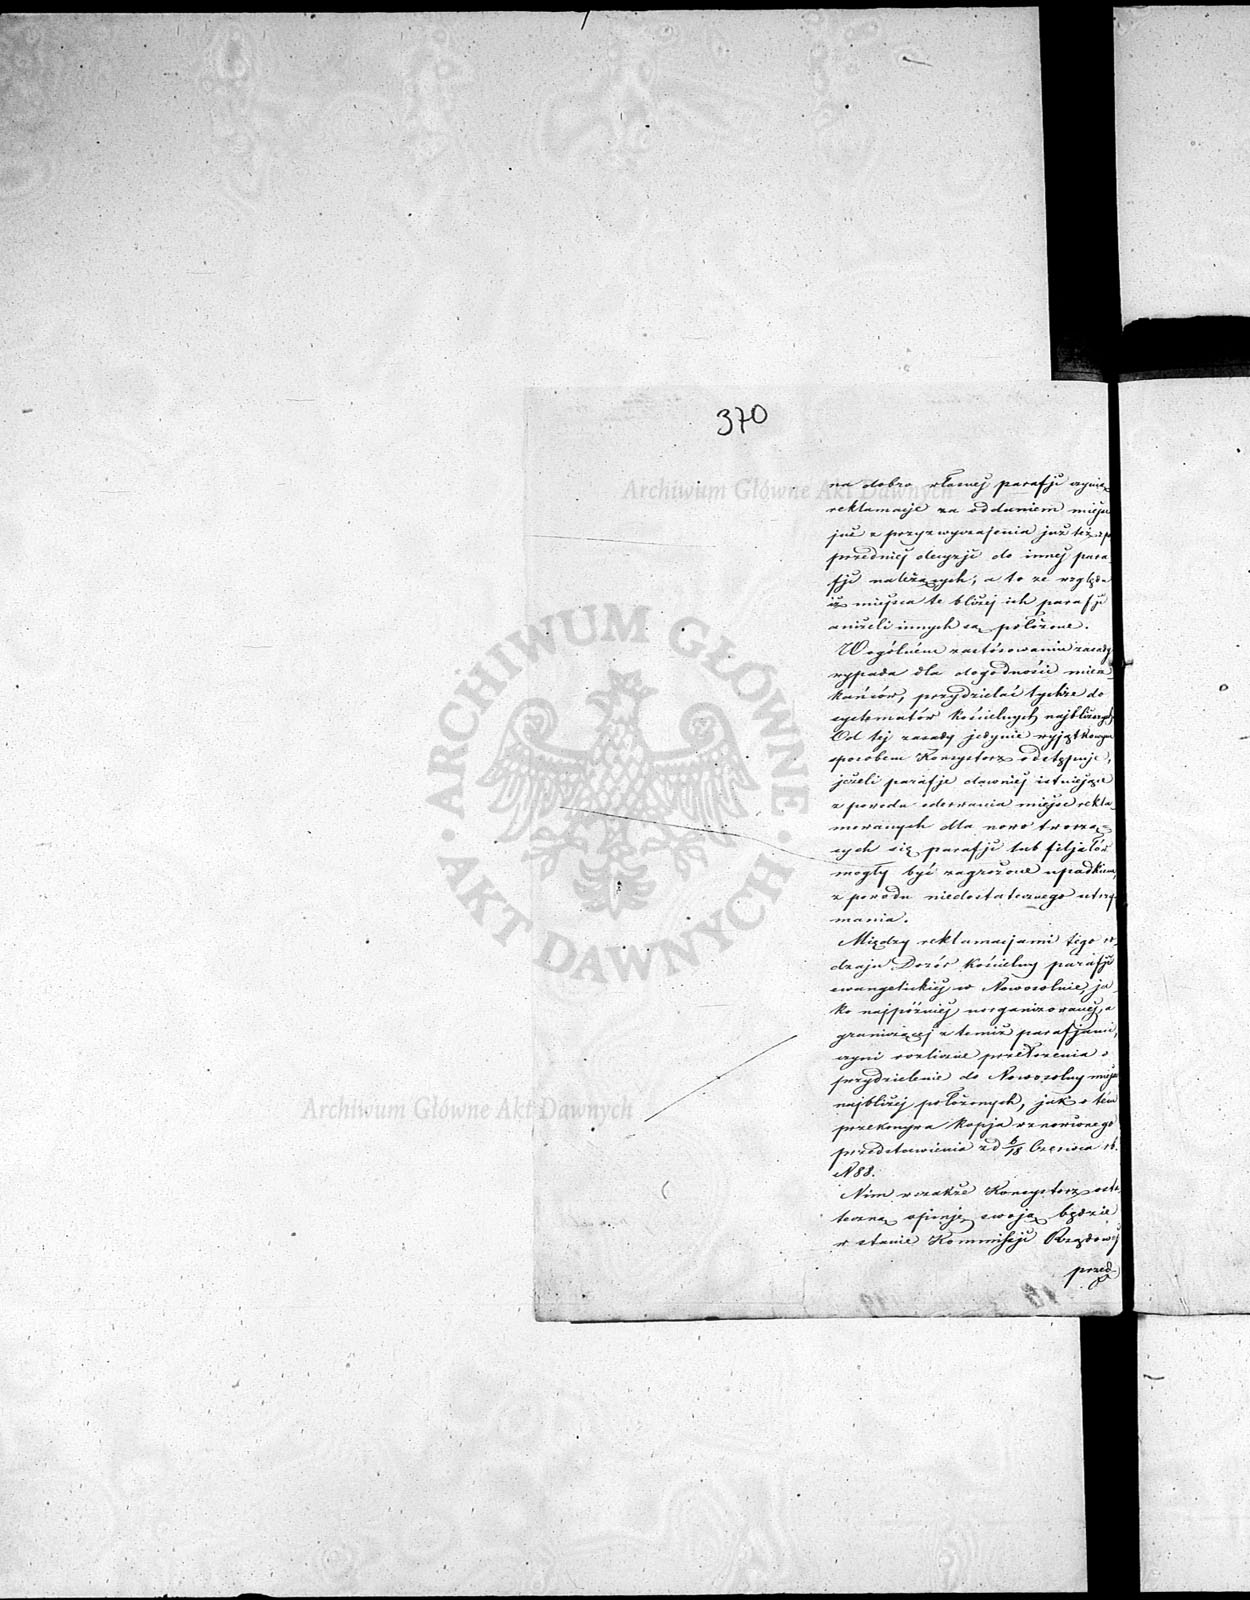 370
na dobro własnej parafji czynią
reklamacje za oddaniem miejsc
już z przyzwyczajenia już też z po
przedniej decyzji do innej para
fji należących; a to ze względu
iż miejsca te bliżej ich parafji
aniżeli innych są położone.
W ogólném zastósowaniu zasady
wypada dla dogodności miesz
kańców, przydzielać tychże do
systematów kościelnych najbliższych
Od tej zasady jedynie wyjątkowym
sposobem Konsystorz odstępuje,
jeżeli parafje dawniej istniejące
z powodu oderwania miejsc rekla
mowanych dla nowo tworzą
cych się parafji lub filjałów
mogły być zagrożone upadkiem,
z powodu niedostatecznego utrzy
mania.
Między reklamacjami tego ro
dzaju Dozór Kościelny parafji
ewangelickiej w Nowosolnie, ja
ko najpóźniej uorganizowanej, a
graniczącej z temiż parafjami,
czyni rozliczne przełożenia o
przydzielenie do Nowosolny miejsc
najbliżej położonych, jak o tém
przekonywa kopja wznowionego
przedstawienia z d 6/18 Czerwca rb.
N 88.
Nim wszakże Konsystorz osta
teczną opinję swoją będzie
w stanie Kommissji Rządowej
przed
Archiwum Główne Akt Dawnych
ARCHIWUM GŁÓWNE
AKT DAWNYCH
Archiwum Główne Akt Dawnych